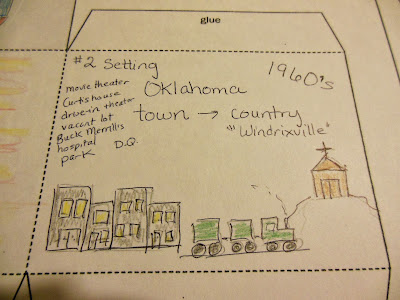 glue
#2 Setting
1960's
movie theater
Curtis house
drive-in theater
vacant lot
Buck Merrill's
hospital
park
D.Q.
Oklahoma
town → country
"Windrixville"